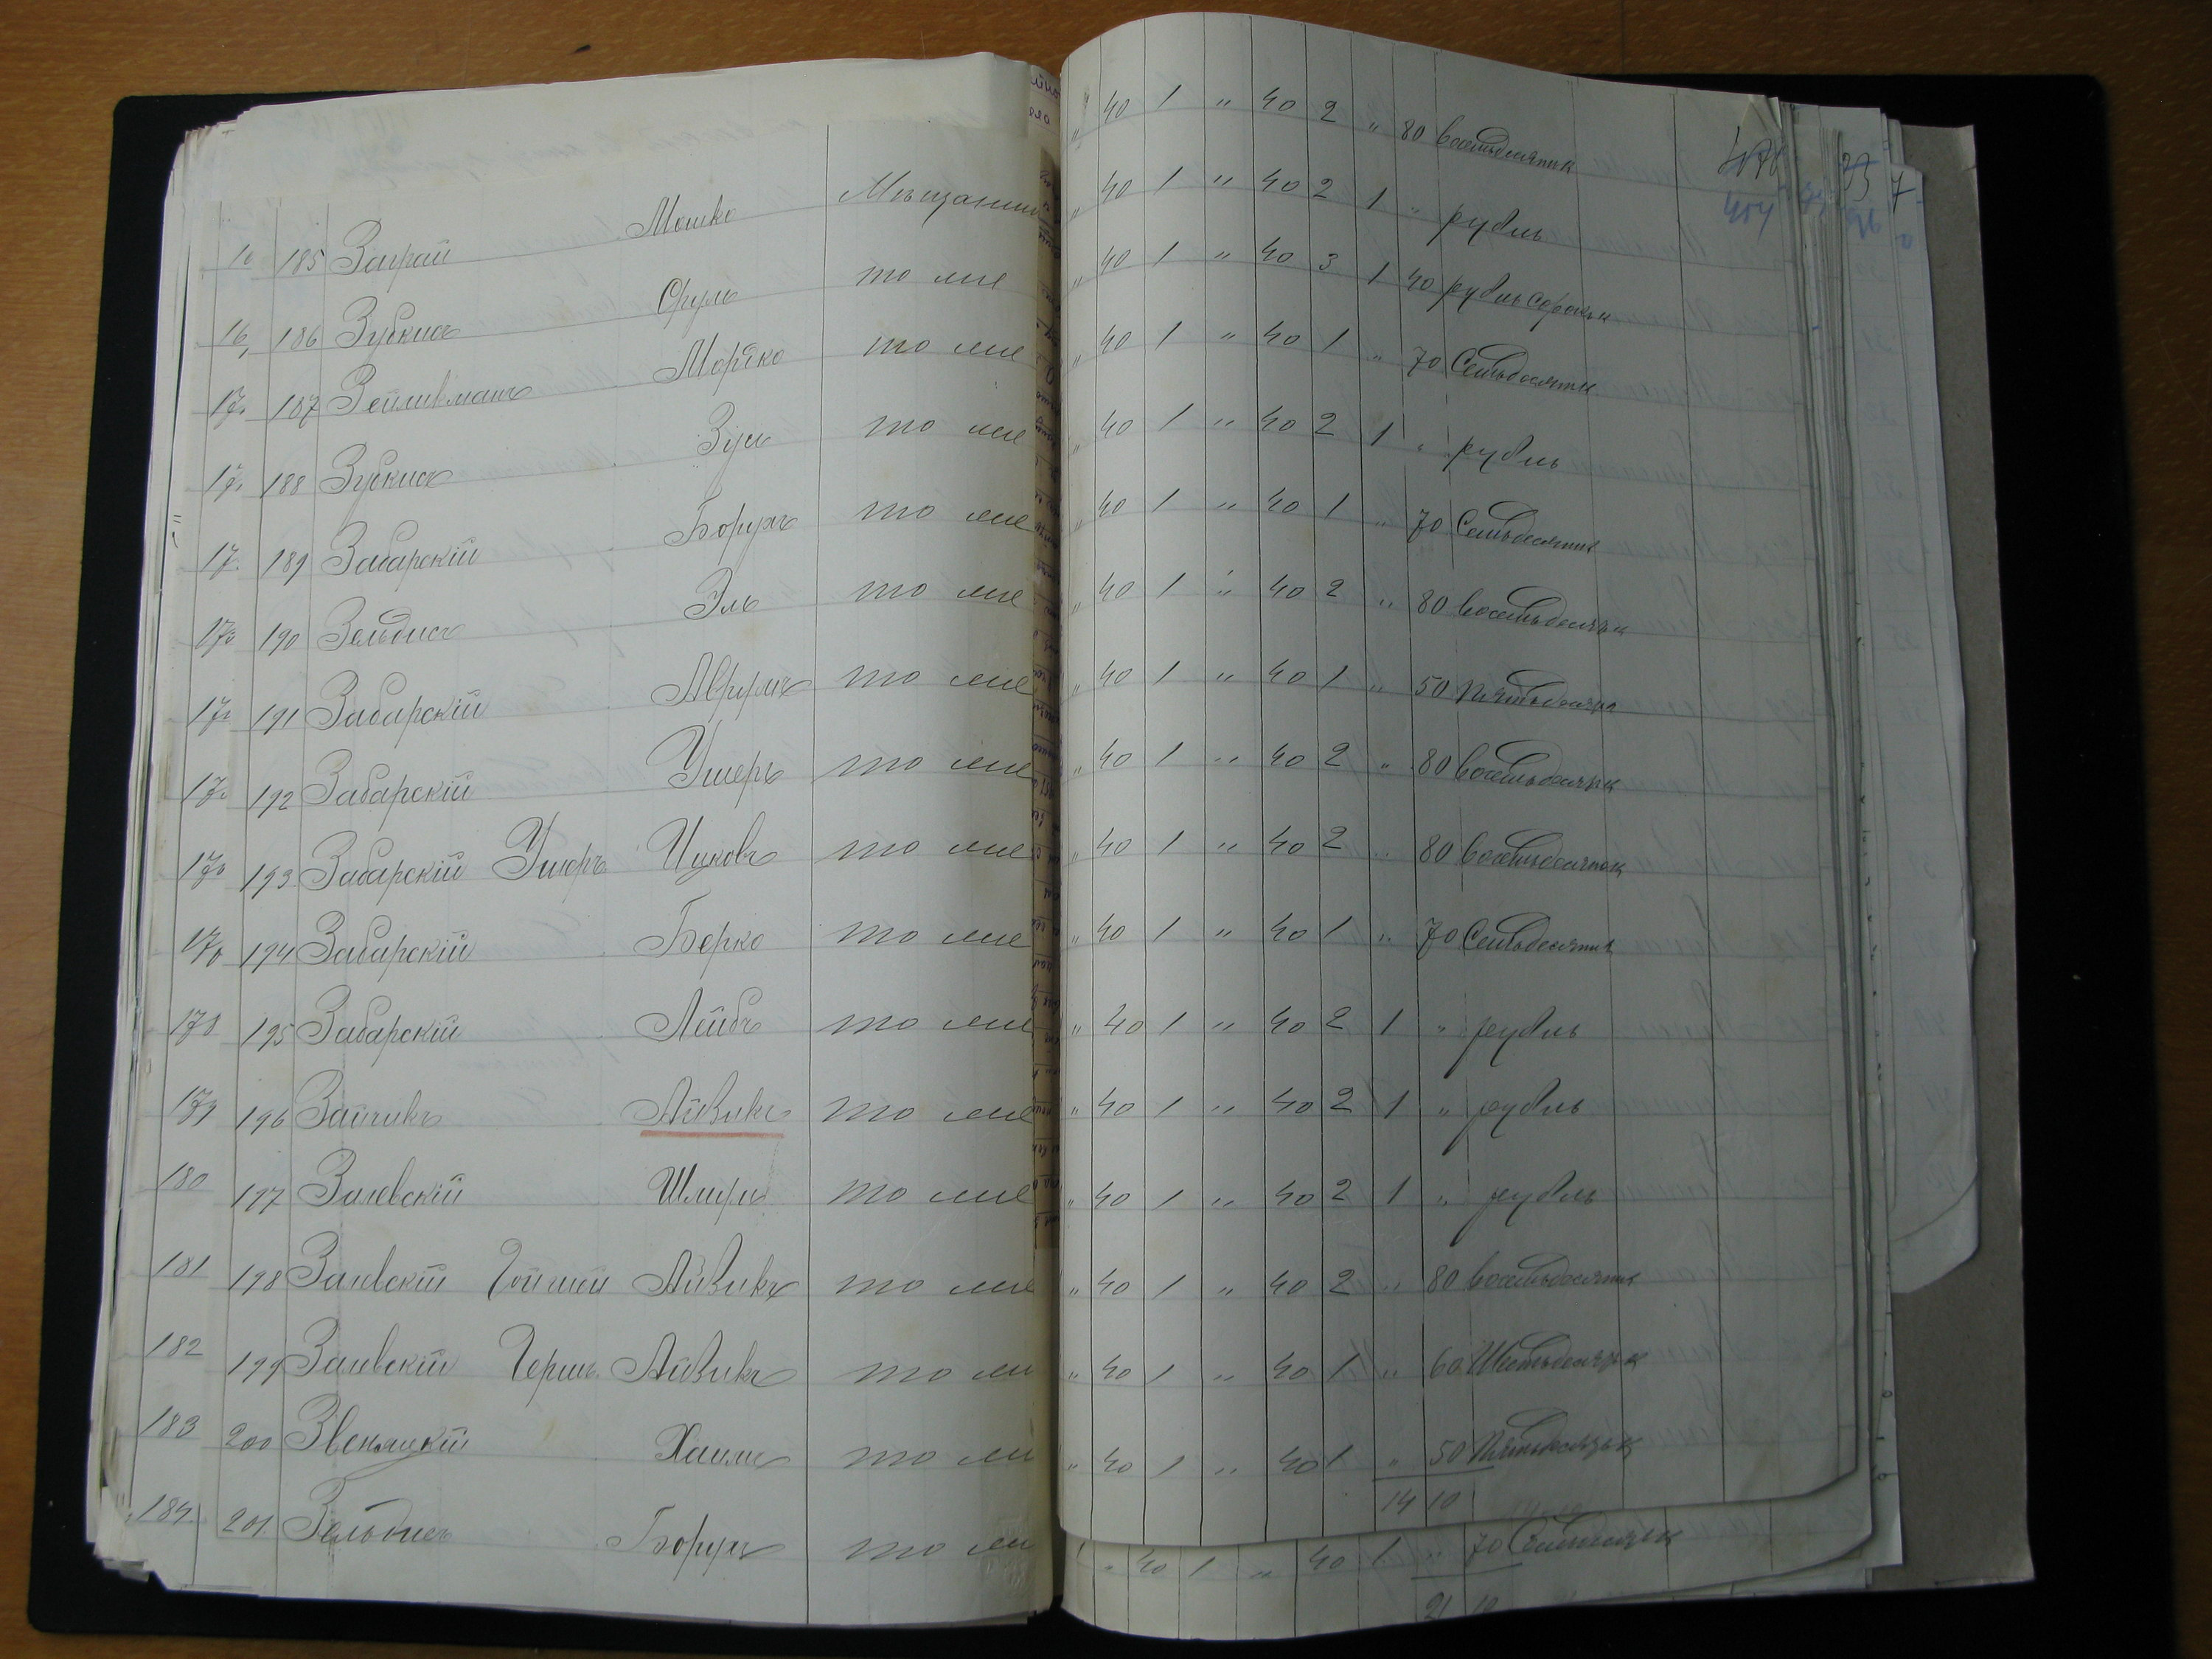 185 Заграй Мошко Мещанин
16 186 Зубкисъ Сруль то же
187 Зейликманъ Моріко то же
188 Зубкисъ Зусь то же
17 189 Забарскій Борухъ то же
190 Зельдисъ Эль то же
191 Забарскій Аврумъ то же
192 Забарскій Ушеръ то же
193 Забарскій Ушеръ Ицковъ то же
194 Забарскій Берко то же
178 195 Забарскій Лейбъ то же
179 196 Зайчикъ Айзикъ то же
180 197 Заевскій Шмуль то же
181 198 Заевскій Айзикъ то же
182 199 Заевскій Гершъ Айзикъ то же
183 200 Звеняцкій Хаимъ то же
184 201 Зельдисъ Борухъ то же
„ 40 1 „ 40 2 „ 80 восемьдесятъ к
„ 40 1 „ 40 2 1 „ рубль
„ 40 1 „ 40 3 1 40 рубль сорокъ к
„ 40 1 „ 40 1 „ 70 Семьдесятъ к
„ 40 1 „ 40 2 1 „ рубль
„ 40 1 „ 40 1 „ 70 Семьдесятъ к
„ 40 1 „ 40 2 „ 80 восемьдесятъ к
„ 40 1 „ 40 1 „ 50 Пятьдесятъ к
„ 40 1 „ 40 2 „ 80 восемьдесятъ к
„ 40 1 „ 40 2 „ 80 восемьдесятъ к
„ 40 1 „ 40 1 „ 70 Семьдесятъ к
„ 40 1 „ 40 2 1 „ рубль
„ 40 1 „ 40 2 1 „ рубль
„ 40 1 „ 40 2 1 „ рубль
„ 40 1 „ 40 2 „ 80 восемьдесятъ к
„ 40 1 „ 40 1 „ 60 Шестьдесятъ к
„ 40 1 „ 40 1 „ 50 Пятьдесятъ к
14 10
„ 40 1 „ 40 1 „ 70 Семьдесятъ к